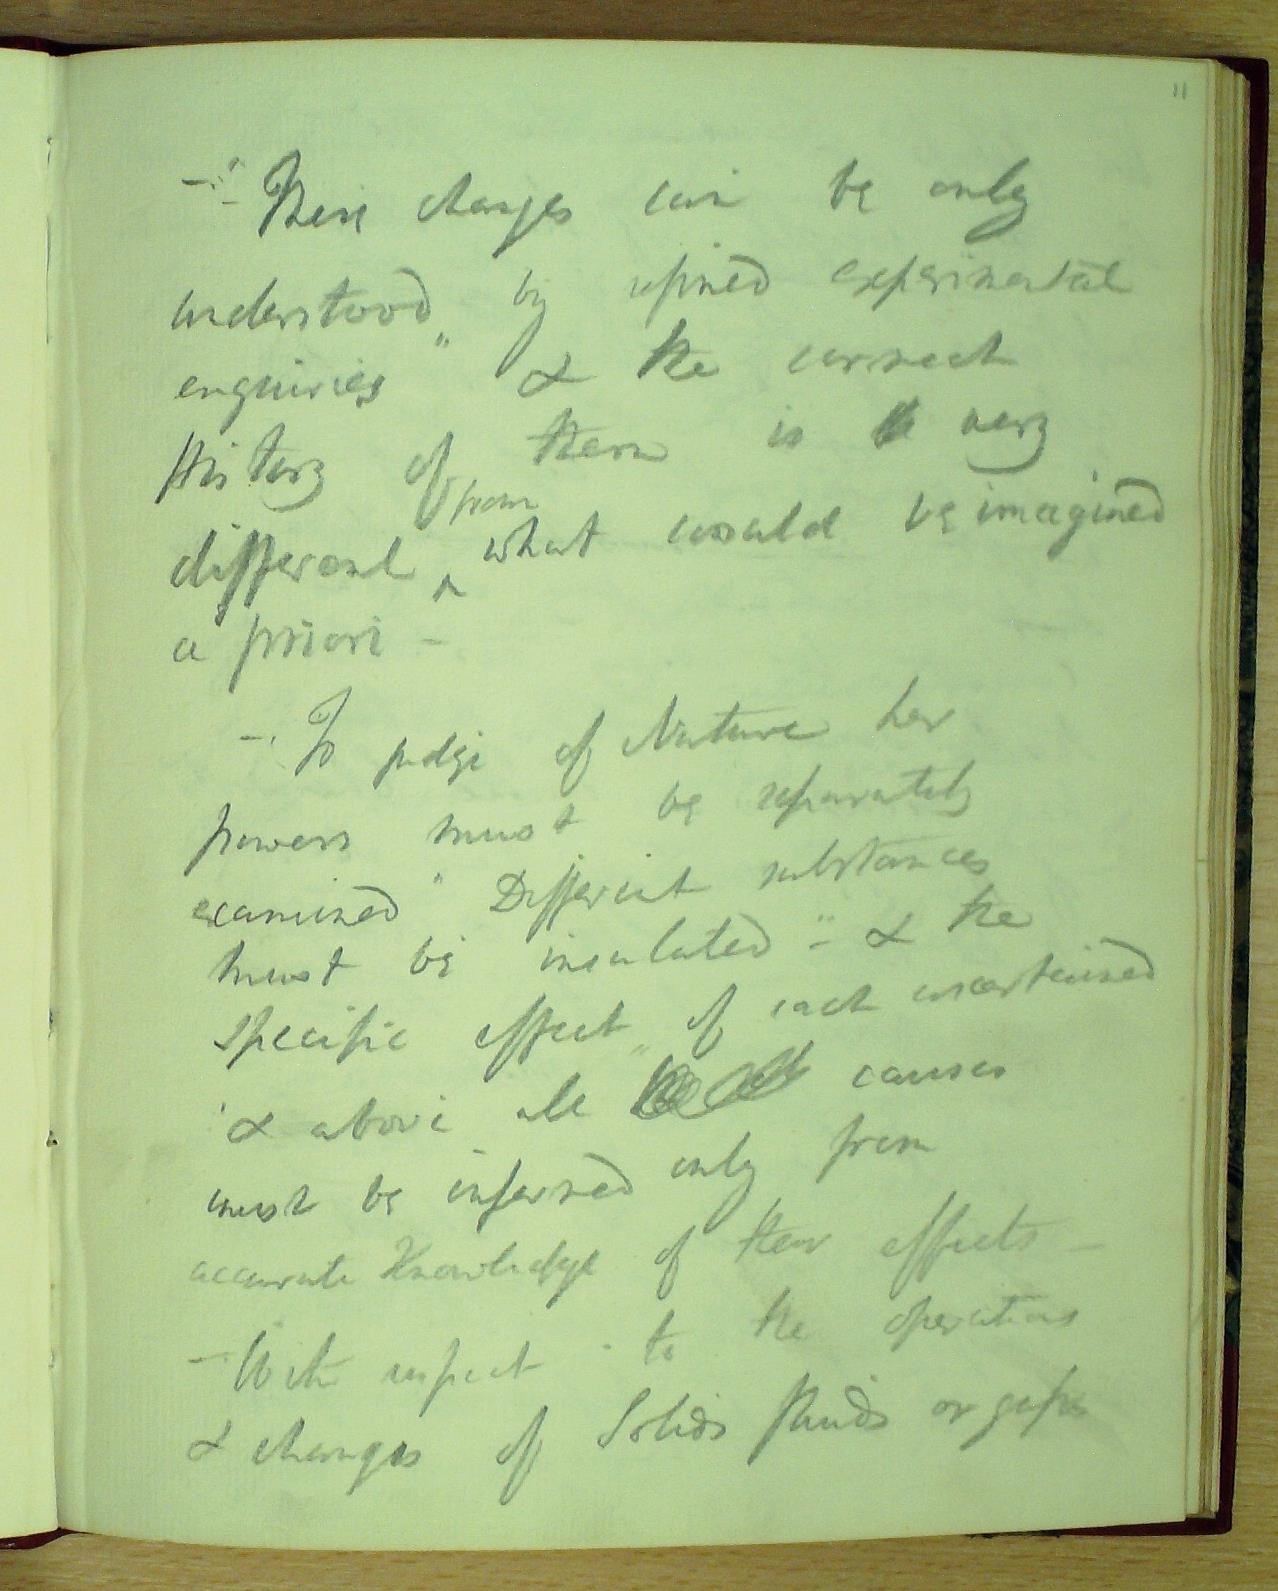 11
- These changes can be only
understood by refined experimental
enquiries " & the correct
History of them is very
different ^from what would be imagined
a priori -
- To judge of Nature her
powers must be separately
examined " Different substances
must be insulated " - & the
specific effect of each ascertained
& above all causes
must be inferred only from
accurate Knowledge of their effects -
- With respect to the operations
& changes of Solids fluids or gases